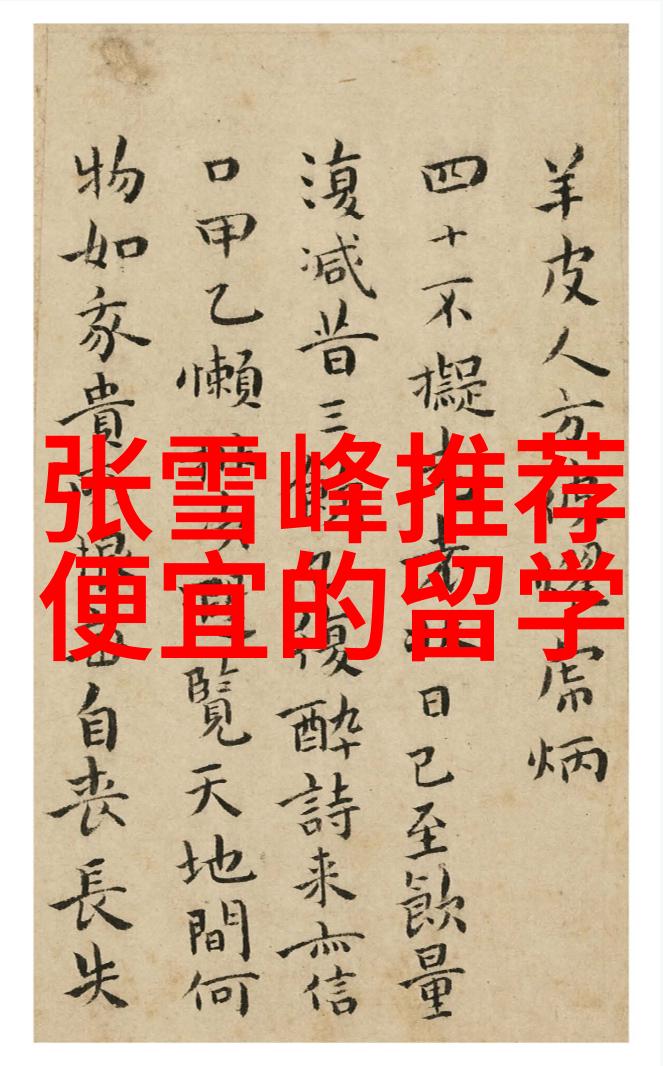 张雪峰推荐
便宜的留学
羊皮人方炳
四十不擬老日已至飲量
復減昔三復酔詩来亦信
口甲乙懶覽天地間何
物如貴自喪長失